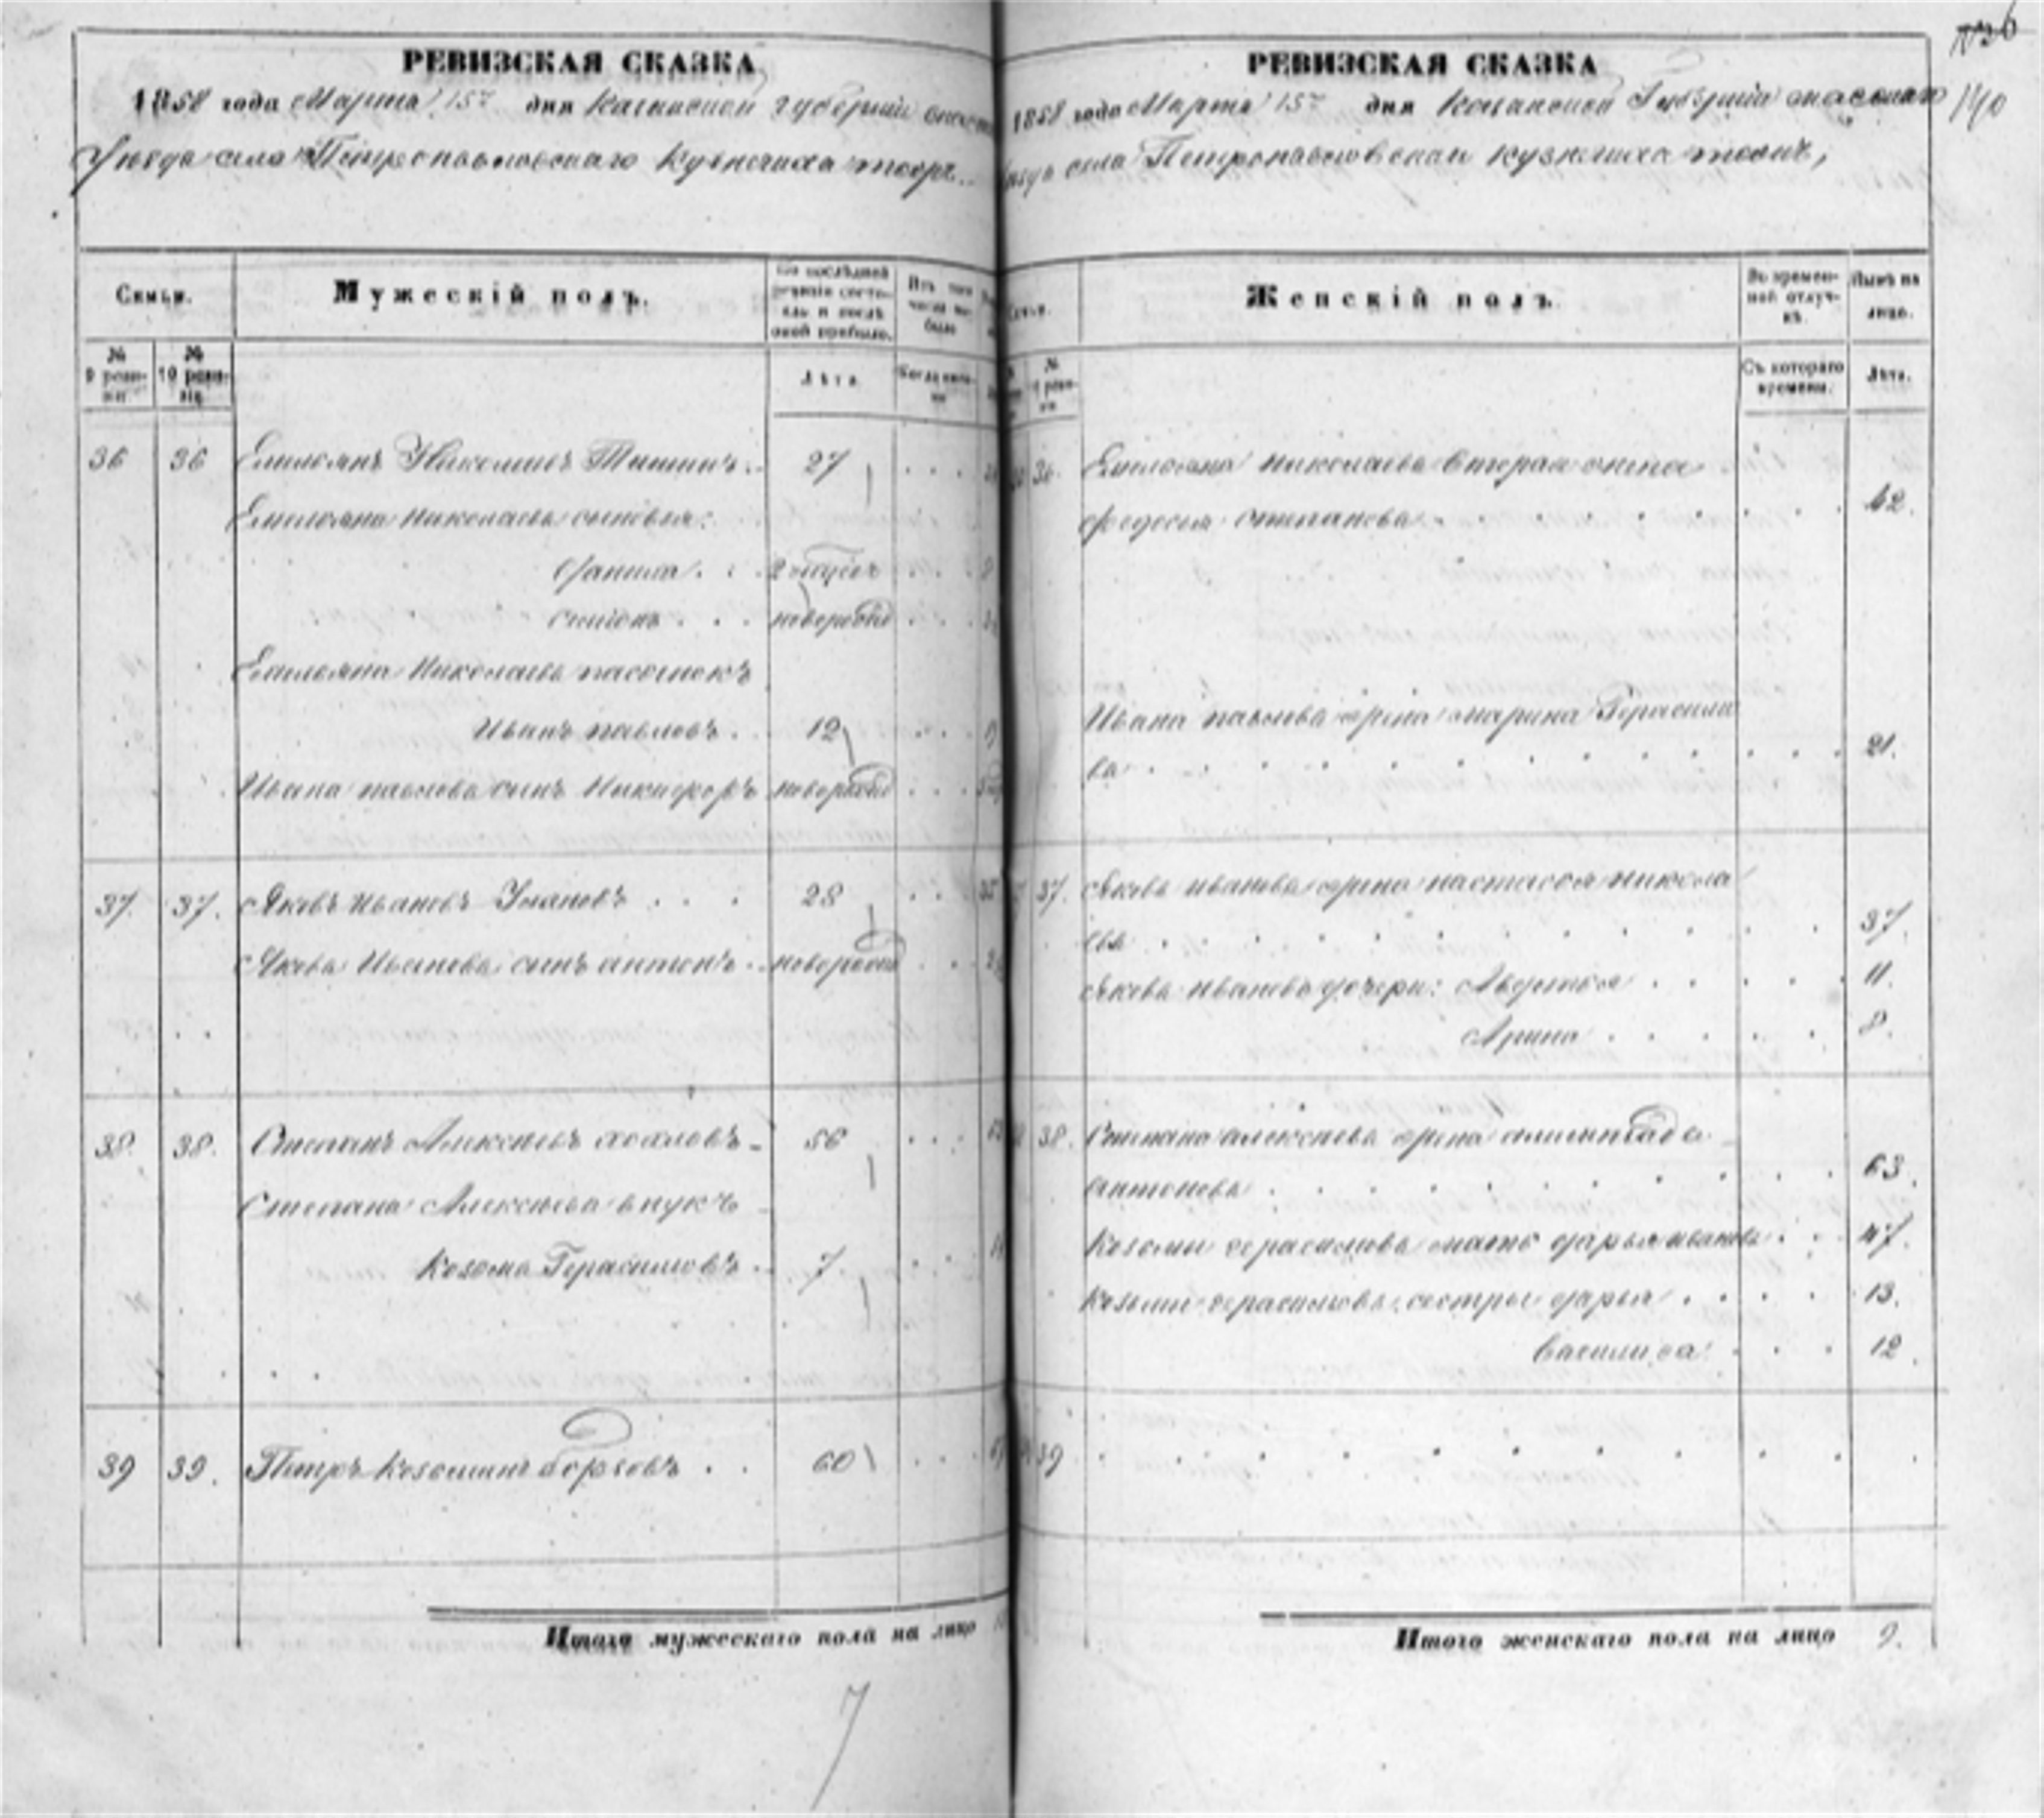 РЕВИЗСКАЯ СКАЗКА
1858 года Марта 15го дня Казанской губернии
Уезда села Петропавловскаго Кузнечиха
Семьи.
Мужескій полъ.
По послѣдней ревизіи состояло и послѣ оной прибыло.
Изъ того числа выбыло
№ 9 ревизіи
№ 10 ревизіи
Лѣта
Когда именно
36 36 Емельянъ Николаевъ Тишинъ 27
Емельяна Николаева сыновья:
Данила
Симонъ новорожд
Емельяна Николаева пасынокъ
Иванъ павловъ 12
Ивана павлова сынъ Никифоръ новорожд
37. 37. Яковъ Ивановъ Улановъ 28
Якова Иванова сынъ антонъ новорожд
38. 38. Степанъ Алексѣевъ хохловъ 56
Степана Алексѣева внукъ
Козьма Герасимовъ 7.
39 39. Петръ Козьминъ 60
Итого мужескаго пола на лицо
7
№ 6
140
РЕВИЗСКАЯ СКАЗКА
1858 года Марта 15го дня Казанской Губерніи спасскаго
села Петропавловскаго кузнечиха
Женскій полъ.
Во временной отлучкѣ.
Нынѣ на лицо.
№ 10 ревизіи
Съ котораго времени.
Лѣта.
36. Емельяна николаева вторая жена
федосья степанова 42.
Ивана павлова жена марина Герасимо
ва 21.
37. Якова иванова жена настасья никола
ева 37.
Якова иванова дочери: Авдотья 11.
Арина 8.
38. Степана алексѣева жена
антонова 63.
Козьмы герасимова мать дарья иванова 47.
Козьмы герасимова сестры дарья 13.
Василиса 12.
39
Итого женскаго пола на лицо 9.